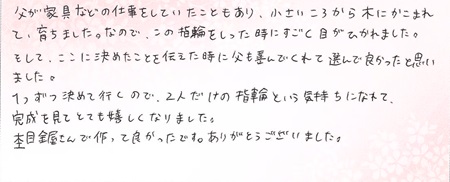 父が家具などの仕事をしていたこともあり、小さいころから木にかこまれ
て、育ちました。なので、この指輪をしった時にすごく目がひかれました。
そして、ここに決めたことを伝えた時に父も喜んでくれて選んで良かったと思い
ました。
1つずつ決めて行くので、2人だけの指輪という気持ちになれて、
完成を見てとても嬉しくなりました。
杢目金屋さんで作って良かったです。ありがとうございました。